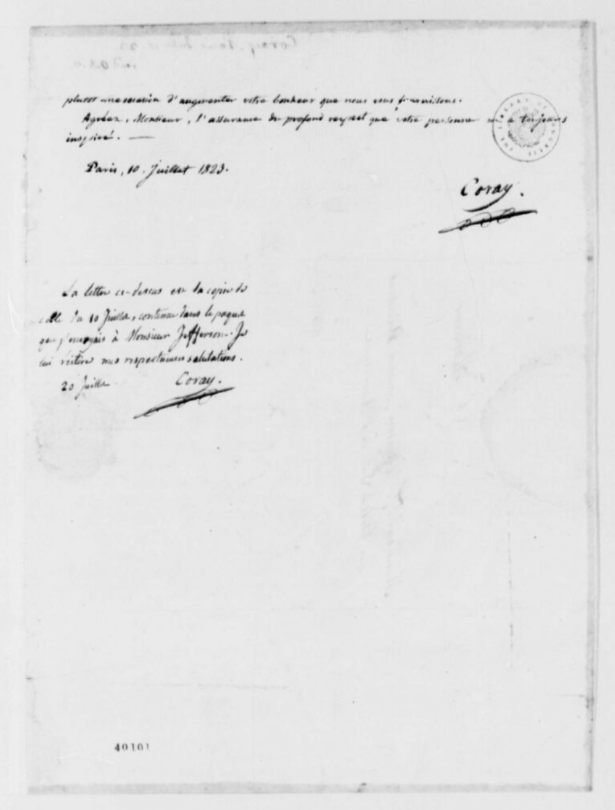 plutot une occasion d'augmenter votre bonheur que nous vous fournissons.
Agréez, Monsieur, l'assurance du profond respect que votre personne m'a toujours
inspiré. —
Paris, 10. Juillet 1823.
Coray.
La lettre ci-dessus est la copie de
celle du 10 Juillet, contenue dans le paquet
que j'envoyais à Monsieur Jefferson. Je
lui réitère mes respectueuses salutations.
20 Juillet. Coray.
40101